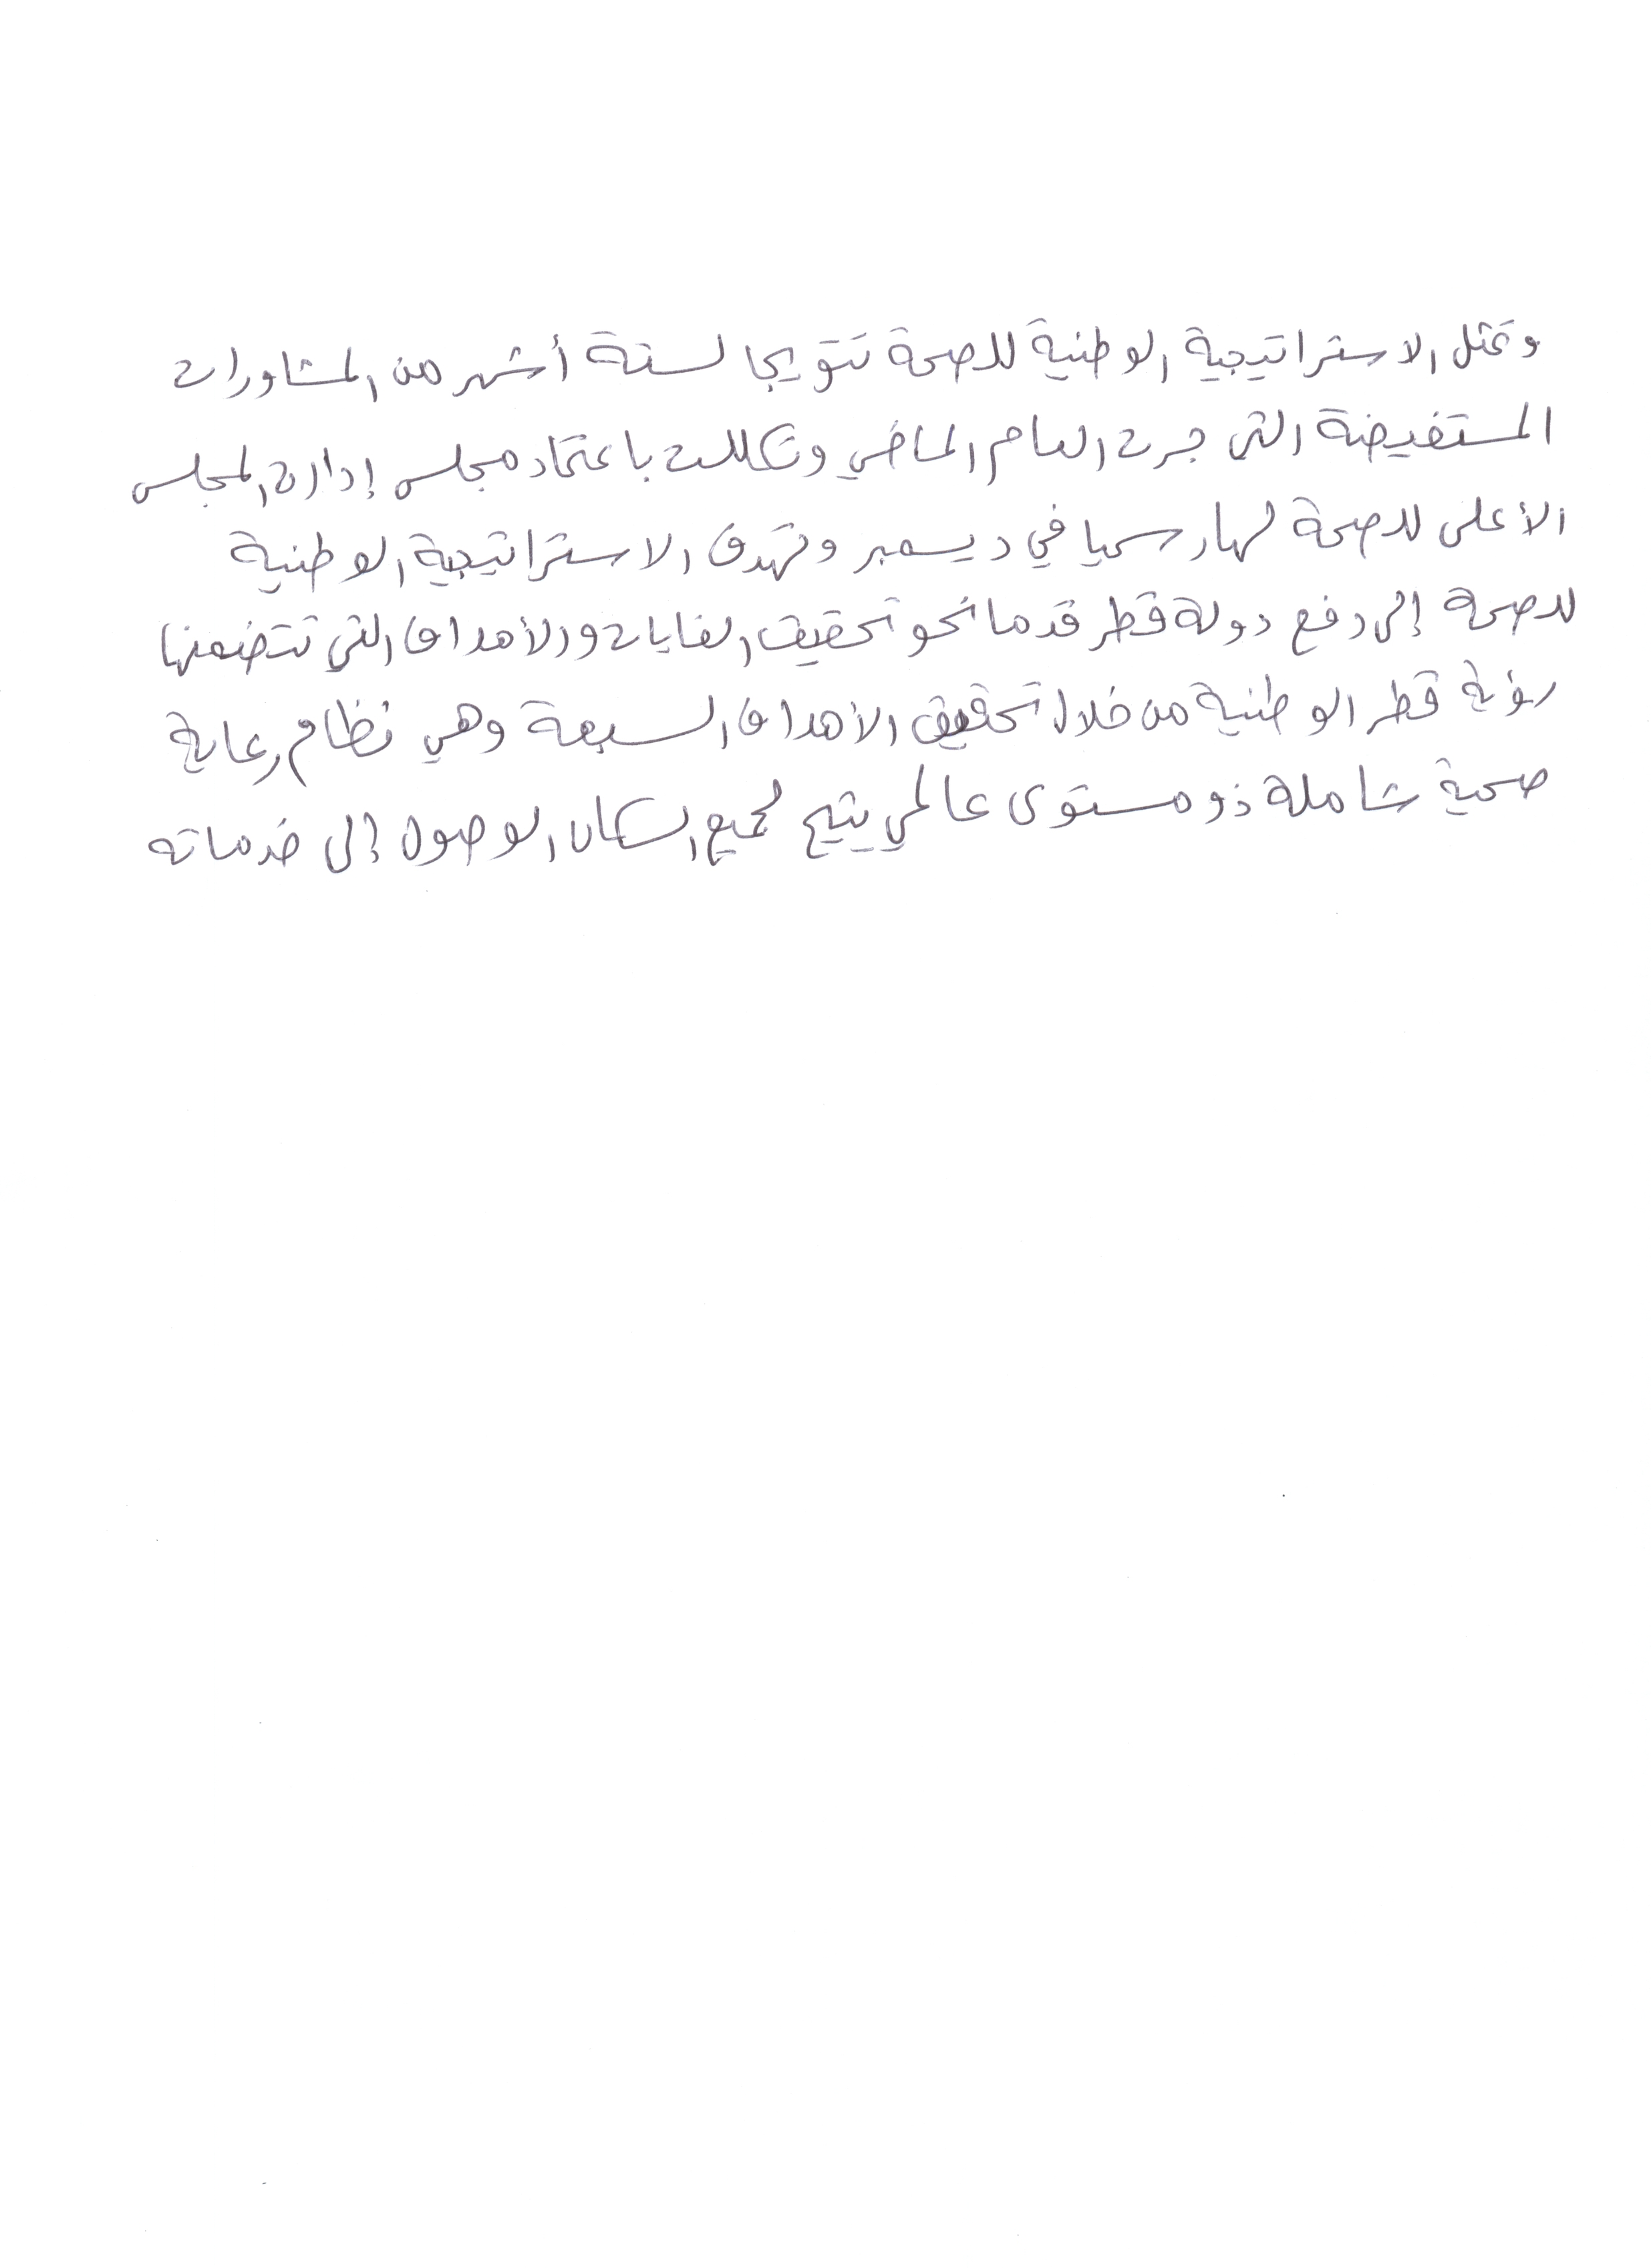 وتمثل الاستراتيجية الوطنية للصحة تتويجا لستة أشهر من المشاورات
المستفيضة التي جرت العام الماضي وتكللت باعتماد مجلس إدارة المجلس
الأعلى للصحة لها رسميا في ديسمبر وتهدف الاستراتيجية الوطنية
للصحة إلى دفع دولة قطر قدما نحو تحقيق الغايات والأهداف التي تتضمنها
رؤية قطر الوطنية من خلال تحقيق الأهداف السبعة وهي نظام رعاية
صحية شاملة ذو مستوى عالمي يتيح لجميع السكان الوصول إلى خدماته